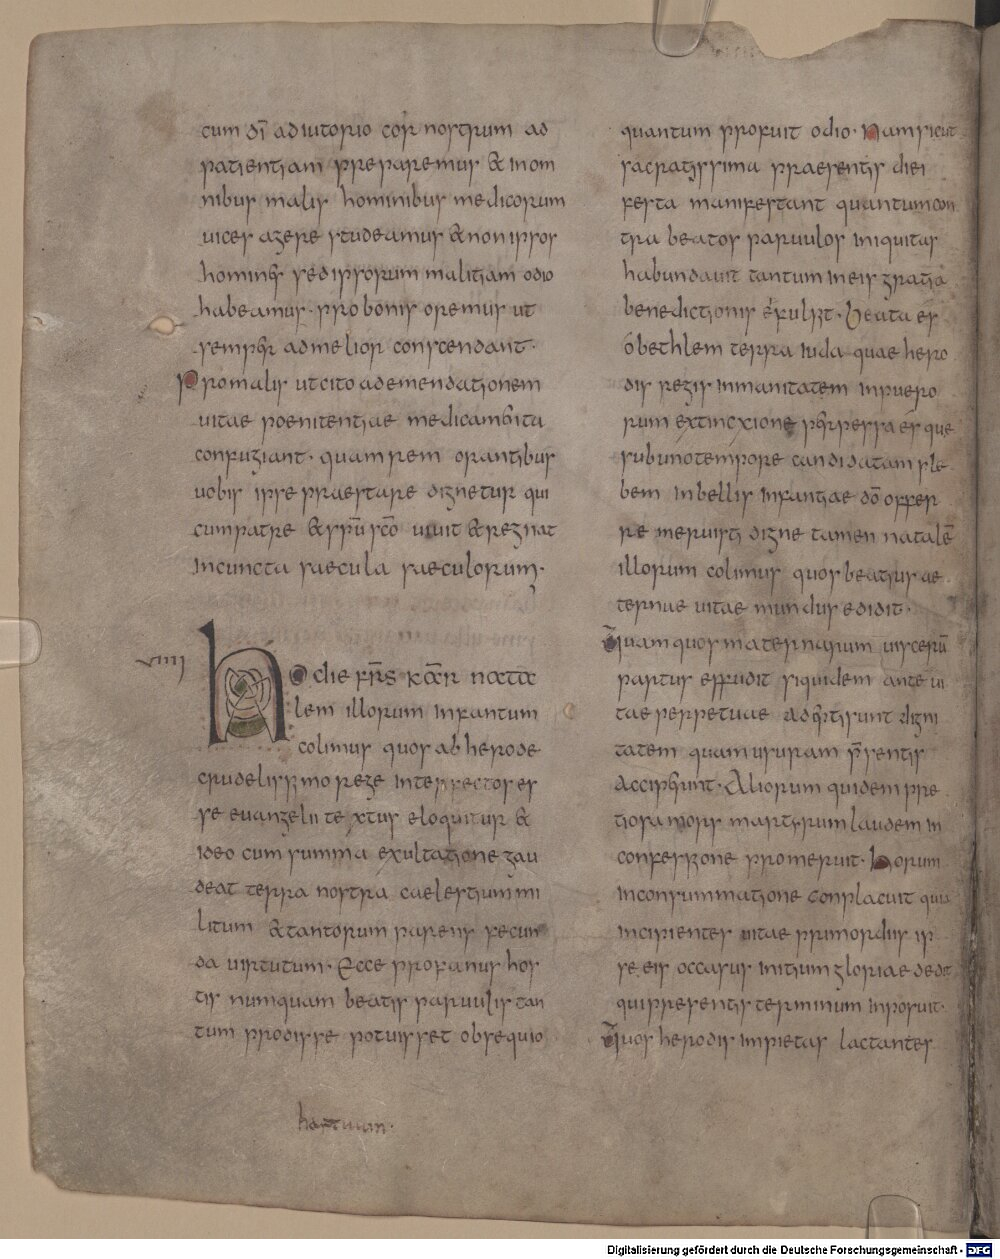 cum dī adiutorio cor nostrum ad
patientiam preparemus & in om
nibus malis hominibus medicorum
uices agere studeamus & non ipsos
homines sed ipsorum malitiam odio
habeamus · pro bonis oremus ut
semper ad melior conscendant ·
Pro malis ut cito ad emendationem
uitae poenitentiae medicamenta
confugiant · quam rem orantibus
uobis ipse praestare dignetur qui
cum patre & spū scō uiuit & regnat
in cuncta saecula saeculorum ·
uiiii
Hodie frēs kār nata
lem illorum infantum
colimus quos ab herode
crudelissimo rege interfectos es
se euangelii textus eloquitur &
ideo cum summa exultatione gau
deat terra nostra caelestium mi
litum & tantorum parens fecun
da uirtutum · Ecce profanus hos
tis numquam beatis paruulis tan
tum prodisse potuisset obsequio
hartuuan ·
quantum profuit odio · Nam sicut
sacratissima praesentis diei
festa manifestant quantum con
tra beatos paruulos iniquitas
habundauit tantum in eis gratia
benedictionis effulgit · Beata es
ó bethlem terra iuda quae hero
dis regis inmanitatem in puero
rum extincxione perpessa es que
sub uno tempore candidatam ple
bem inbellis infantiae dō offer
re meruisti digne tamen natalē
illorum colimus quos beatius ae
ternae uitae mundus edidit ·
Quam quos maternarum uiscerū
partus effudit siquidem ante ui
tae perpetuae adepti sunt digni
tatem quam usuram prēsentis
acciperunt · Aliorum quidem pre
tiosa mors martyrum laudem in
confessione promeruit · Horum
in consummatione conplacuit quia
incipientes uitae primordiis ip
se eis occasus initium gloriae dedit
qui presentis terminum inposuit ·
Quos herodis impietas lactantes